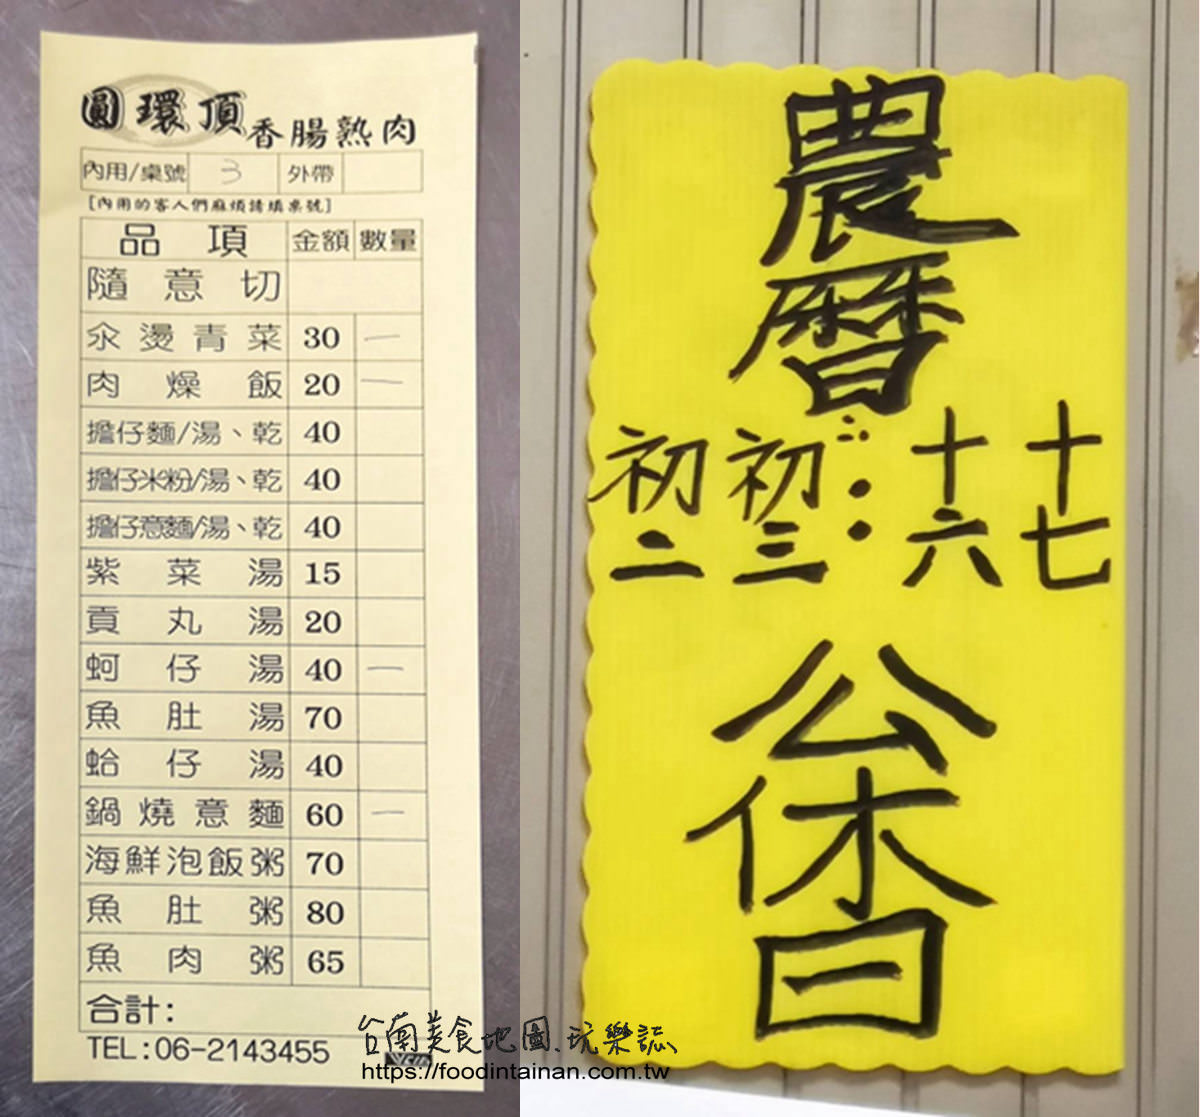 圓環頂香腸熟肉
內用/桌號 3 外帶
[內用的客人們麻煩請填桌號]
品項 金額 數量
隨意切
汆燙青菜 30 一
肉燥飯 20 一
擔仔麵/湯、乾 40
擔仔米粉/湯、乾 40
擔仔意麵/湯、乾 40
紫菜湯 15
貢丸湯 20
蚵仔湯 40 一
魚肚湯 70
蛤仔湯 40
鍋燒意麵 60 一
海鮮泡飯粥 70
魚肚粥 80
魚肉粥 65
合計:
TEL:06-2143455
農曆:
初二 初三: 十六 十七
公休日
台南美食地圖.玩樂誌
https://foodintainan.com.tw